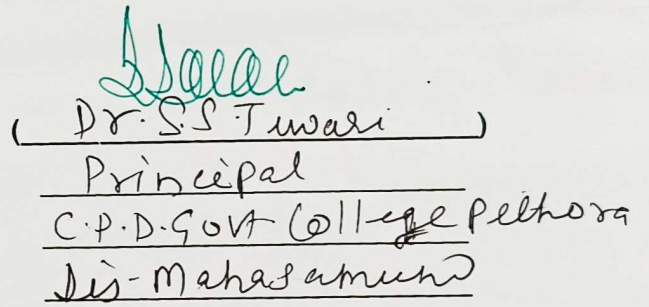 ( Dr. S.S. Tiwari )
Principal
C.P.D. Govt College Pithora
Dis-Mahasamund